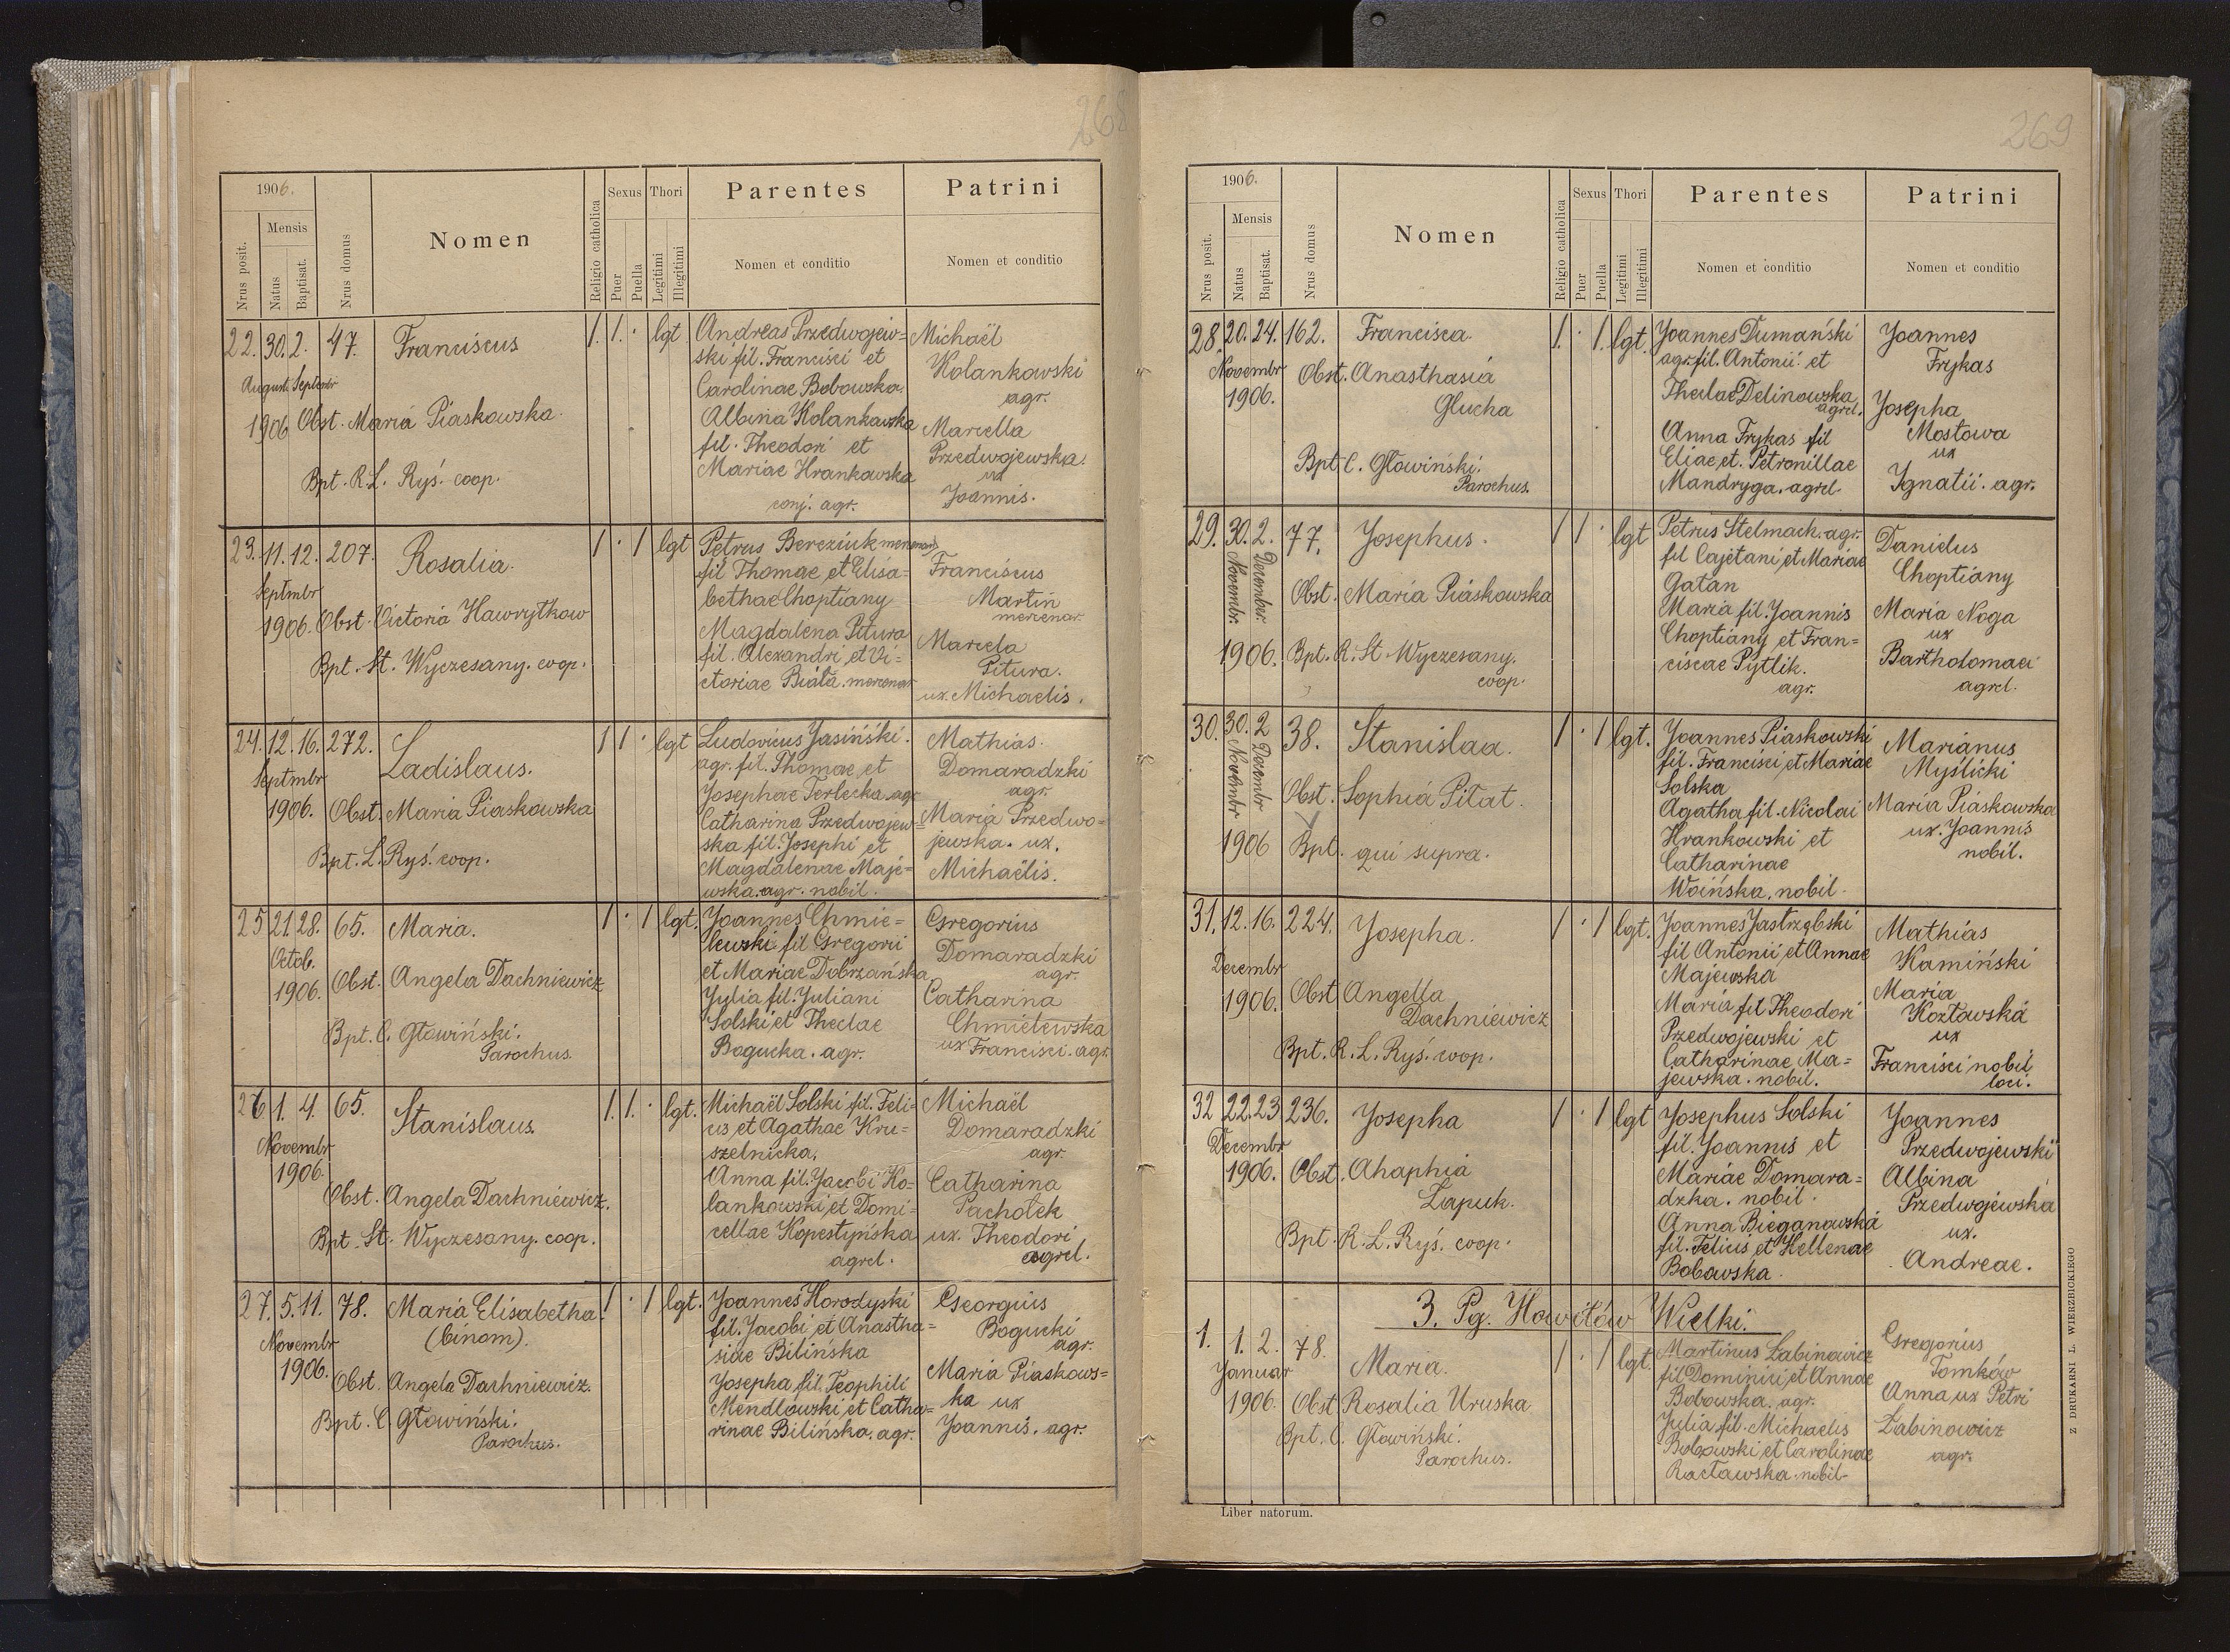 268
1906.
Nrus posit.
Mensis
Natus
Baptisat.
Nrus domus
Nomen
Religio catholica
Sexus
Puer
Puella
Thori
Legitimi
Illegitimi
Parentes
Nomen et conditio
Patrini
Nomen et conditio
22. 30. 2. 47. Franciscus 1. 1. · lgt
August. Septembr
1906 Obst. Maria Piaskowska.
Bpt. R. L. Ryś. coop.
Andreas Przedwojew=
ski fil. Francisci et
Carolinae Bobowska.
Albina Kolankowska
fil. Theodori et
Mariae Hrankowska
conj. agr.
Michaël
Kolankowski
agr.
Marcella
Przedwojewska.
ux
Joannis.
23. 11. 12. 207. Rosalia. 1 · 1 lgt
Septmbr
1906. Obst. Victoria Hawrytkow
Bpt. St. Wyczesany. coop.
Petrus Bereziuk mercenar.
fil Thomae et Elisa=
bethae Choptiany
Magdalena Pitura
fil. Alexandri et Vi=
ctoriae Biała. mercenar
Franciscus
Martin
mercenar.
Marcela
Pitura.
ux. Michaelis.
24. 12. 16. 272. Ladislaus. 1 1 · lgt
Septmbr
1906. Obst. Maria Piaskowska
Bpt. L. Ryś. coop.
Ludovicus Jasiński.
agr. fil. Thomae et
Josephae Terlecka agr
Catharina Przedwojew=
ska fil. Josephi et
Magdalenae Maje=
wska. agr. nobil.
Mathias.
Domaradzki
agr.
Maria Przedwo=
jewska. ux.
Michaëlis.
25 21. 28. 65. Maria. 1 · 1 lgt.
Octob.
1906. Obst. Angela Dachniewicz
Bpt. C. Głowiński.
Parochus.
Joannes Chmie=
lewski fil Gregorii
et Mariae Dobrzańska
Julia fil. Juliani
Solski et Theclae
Bogucka. agr.
Gregorius
Domaradzki
agr.
Catharina
Chmielewska
ux Francisci. agr.
26 1. 4. 65. Stanislaus. 1. 1. · lgt.
Novembr
1906.
Obst. Angela Dachniewicz.
Bpt. St. Wyczesany. coop.
Michaël Solski fil. Feli=
cis et Agathae Kru=
szelnicka.
Anna fil. Jacobi Ko=
lankowski et Domi=
cellae Kopestyńska
agrcl.
Michaël
Domaradzki
agr.
Catharina
Pachołek
ux. Theodori
agrcl.
27. 5. 11. 78. Maria Elisabetha. 1 · 1 lgt.
(binom).
Novembr
1906.
Obst. Angela Dachniewicz.
Bpt. C. Głowiński.
Parochus.
Joannes Horodyski
fil. Jacobi et Anastha=
siae Bilińska
Josepha fil. Teophili
Mendlowski et Catha=
rinae Bilińska. agr.
Georgius
Bogucki
agr.
Maria Piaskows=
ka ux
Joannis. agr.
269
1906.
Nrus posit.
Mensis
Natus
Baptisat.
Nrus domus
Nomen
Religio catholica
Sexus
Puer
Puella
Thori
Legitimi
Illegitimi
Parentes
Nomen et conditio
Patrini
Nomen et conditio
28. 20. 24. 162. Francisca. 1. · 1. lgt.
Novembr
1906.
Obst. Anasthasia
Glucha
Bpt. C. Głowiński.
Parochus.
Joannes Dumański
agr. fil. Antonii et
Theclae Delinowska
agrcl.
Anna Frykas fil
Eliae et. Petronillae
Mandryga. agrcl.
Joannes
Frykas
Josepha
Mostowa
ux
Ignatii. agr.
29. 30. 2. 77. Josephus. 1 1 · lgt
Novembr. December.
Obst. Maria Piaskowska
1906. Bpt. R. St. Wyczesany.
coop.
Petrus Stelmach. agr.
fil Cajetani et Mariae
Gatan
Maria fil. Joannis
Choptiany et Fran=
ciscae Pytlik.
agr.
Danielus
Choptiany
Maria Noga
ux
Bartholomaei
agrcl.
30. 30. 2 38. Stanislaa. 1 · 1 lgt.
Novembr Decembr
Obst. Sophia Pilat.
1906 Bpt. qui supra.
Joannes Piaskowski
fil. Francisci et Mariae
Solska
Agatha fil. Nicolai
Hrankowski et
Catharinae
Woińska. nobil.
Marianus
Myślicki
Maria Piaskowska
ux. Joannis
nobil.
31. 12. 16. 224. Josepha. 1 · 1 lgt.
Decembr
1906. Obst Angella
Dachniewicz
Bpt. R. L. Ryś. coop.
Joannes Jastrzębski
fil Antonii et Annae
Majewska
Maria fil Theodori
Przedwojewski et
Catharinae Ma=
jewska. nobil.
Mathias
Kamiński
Maria
Kozłowska
ux
Francisci nobil
loci.
32 22. 23. 236. Josepha 1 · 1 lgt
Decembr
1906. Obst. Ahaphia
Lapuk.
Bpt. R. L. Ryś. coop.
Josephus Solski
fil. Joannis et
Mariae Domara=
dzka. nobil.
Anna Bieganowska
fil. Felicis et Hellenae
Bobowska.
Joannes
Przedwojewski
Albina
Przedwojewska
ux.
Andreae.
3. Pg. Howiłów Wielki.
1. 1. 2. 78. Maria. 1 · 1 lgt.
Januar
1906. Obst Rosalia Uruska
Bpt. C. Głowiński.
Parochus.
Martinus Łabinowicz
fil Dominici et Annae
Bobowska. agr.
Julia fil. Michaelis
Bobowski et Carolinae
Racławska. nobil.
Gregorius
Tomków
Anna ux Petri
Łabinowicz
agr.
Liber natorum.
Z DRUKARNI L. WIERZBICKIEGO